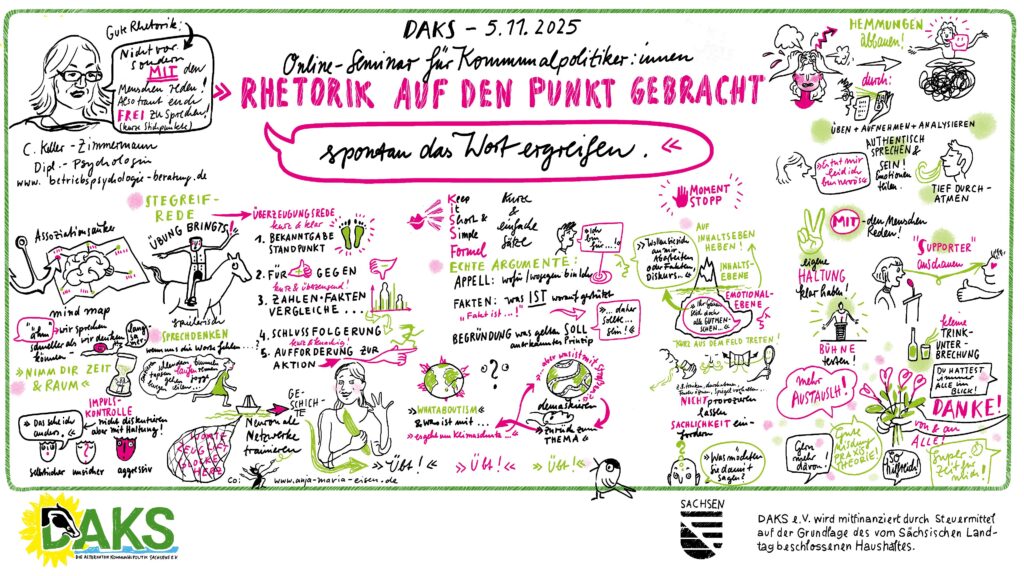 DAKS – 5.11.2025
Online-Seminar für Kommunalpolitiker:innen
» RHETORIK AUF DEN PUNKT GEBRACHT
spontan das Wort ergreifen. «
Gute Rhetorik:
Nicht vor
sondern
MIT den
Menschen reden!
Also traut euch
FREI zu Sprechen!
(kurze Stichpunkte)
C. Keller-Zimmermann
Dipl.-Psychologin
www.betriebspsychologie-beratung.de
STEGREIF-
REDE
Assoziationsanker
ÜBUNG BRINGTS!
mind map
spielerisch
wir sprechen
schneller als wir denken
können
lang
sa
mer
» NIMM DIR ZEIT
& RAUM «
SPRECHDENKEN
wenn uns die Worte fehlen...
IMPULS-
KONTROLLE
» Das sehe ich
anders. «
nicht diskutieren
aber mit Haltung!
selbstsicher unsicher aggressiv
WORTE
KEUGLE
GLOCKE
HERZ
Neuronale
Netzwerke
trainieren
GE-
SCHICH-
TE
ÜBERZEUGUNGSREDE
kurz & klar
1. BEKANNTGABE
STANDPUNKT
2. FÜR GEGEN
kurz & überzeugend!
3. ZAHLEN-FAKTEN
VERGLEICHE ...
4. SCHLUSSFOLGERUNG
kurz & knackig!
5. AUFFORDERUNG ZUR
AKTION
co:
www.anja-maria-eisen.de
Keep
it
Short &
Simple
Formel
Kurze
&
einfache
Sätze
ECHTE ARGUMENTE:
APPELL: wofür/wogegen bin ich
» Ich
bin
für ...!«
FAKTEN: was IST
"Fakt ist ...!"
BEGRÜNDUNG was gelten SOLL
anerkanntes Prinzip
» ... daher
sollte ...
sein! «
» WHATABOUTISM «
& was ist mit ...
» ... aber was ist mit
demaskieren
» zurück zum
THEMA «
» Übt! « » Übt! « » Übt! «
MOMENT
STOPP
AUF
INHALTSEBENE
HEBEN!
INHALTS-
EBENE
EMOTIONAL-
EBENE
KURZ AUS DEM FELD TRETEN!
NICHT provozieren
lassen
SACHLICHKEIT ein-
fordern
» Was möchten
Sie damit
sagen?
HEMMUNGEN
abbauen!
durch:
ÜBEN + AUFNEHMEN + ANALYSIEREN
AUTHENTISCH
SPRECHEN &
SEIN!
Emotionen
teilen.
» Es tut mir
leid ich
bin nervös «
TIEF DURCH-
ATMEN
MIT - den Menschen
Reden!
eigene
HALTUNG
klar haben!
"SUPPORTER"
anschauen
BÜHNE
testen!
kleine
TRINK-
UNTER-
BRECHUNG
mehr
AUSTAUSCH!
DU HATTEST
immer
ALLE im
BLICK!
DANKE!
von & an
ALLE!
Gern
mehr
davon.
Gute
Mischung
PRAXIS
THEORIE!
SO
hilfreich!
Super
Zeit für
mich!
DAKS
DIE ALTERNATIVE KOMMUNALPOLITIK SACHSENS E.V.
SACHSEN
DAKS e.V. wird mitfinanziert durch Steuermittel
auf der Grundlage des vom Sächsischen Land-
tag beschlossenen Haushaltes.